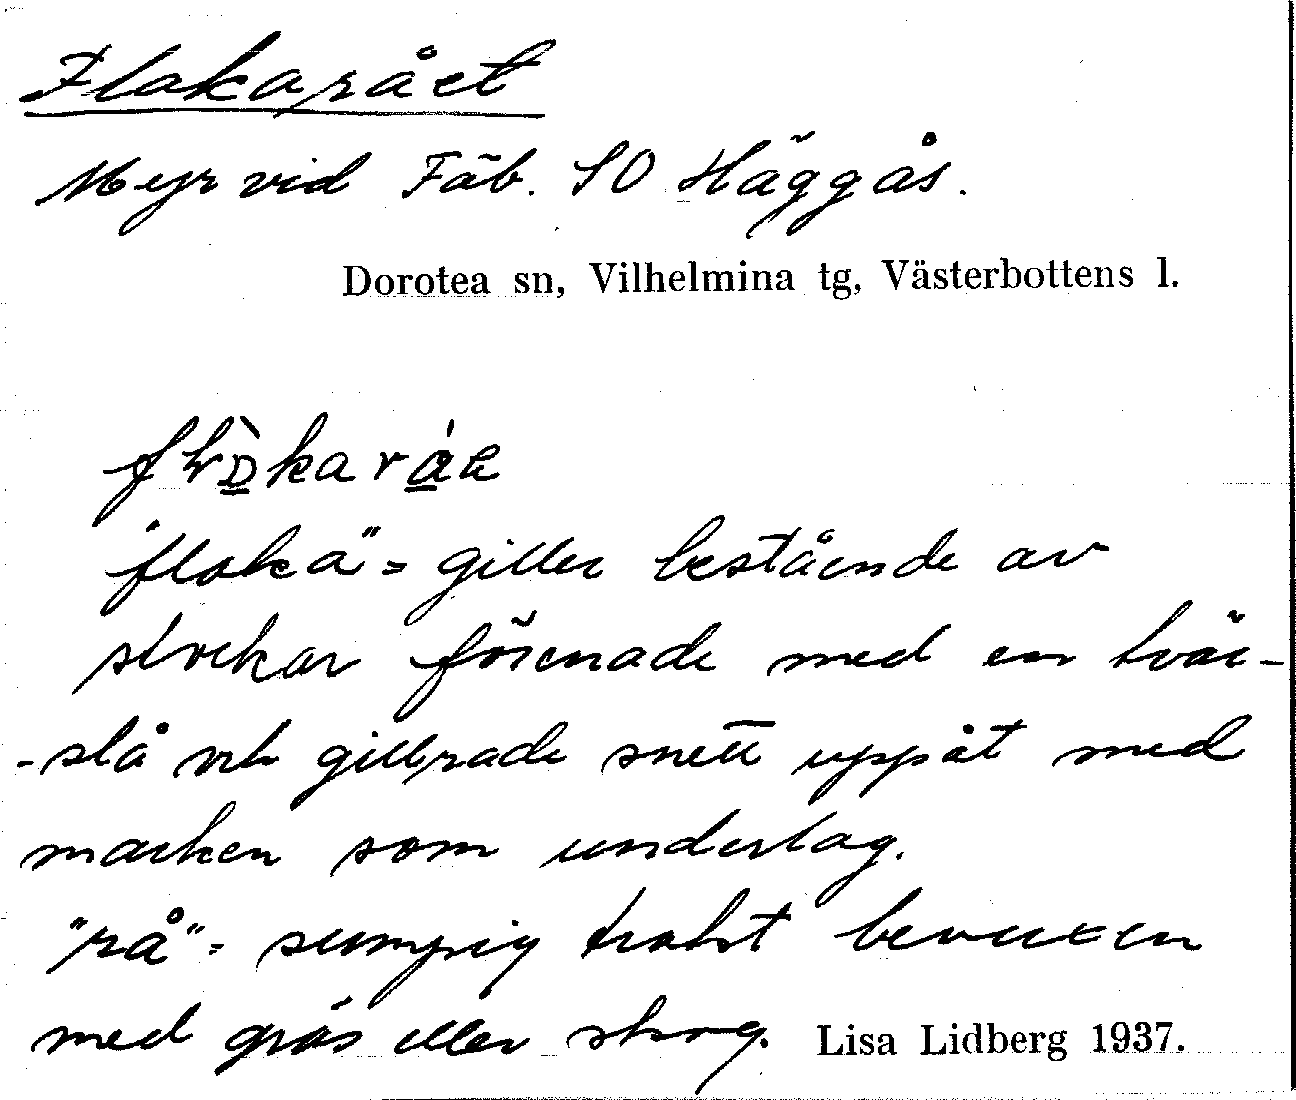 Flakarået
Myr vid Fäb. SO Häggås.
Dorotea sn, Vilhelmina tg, Västerbottens l.
"flaka" = giller bestående av
stockar förenade med en tvär-
-slå och gillrade snett uppåt med
marken som underlag.
"rå" = sumpig trakt bevuxen
med gräs eller skog. Lisa Lidberg 1937.